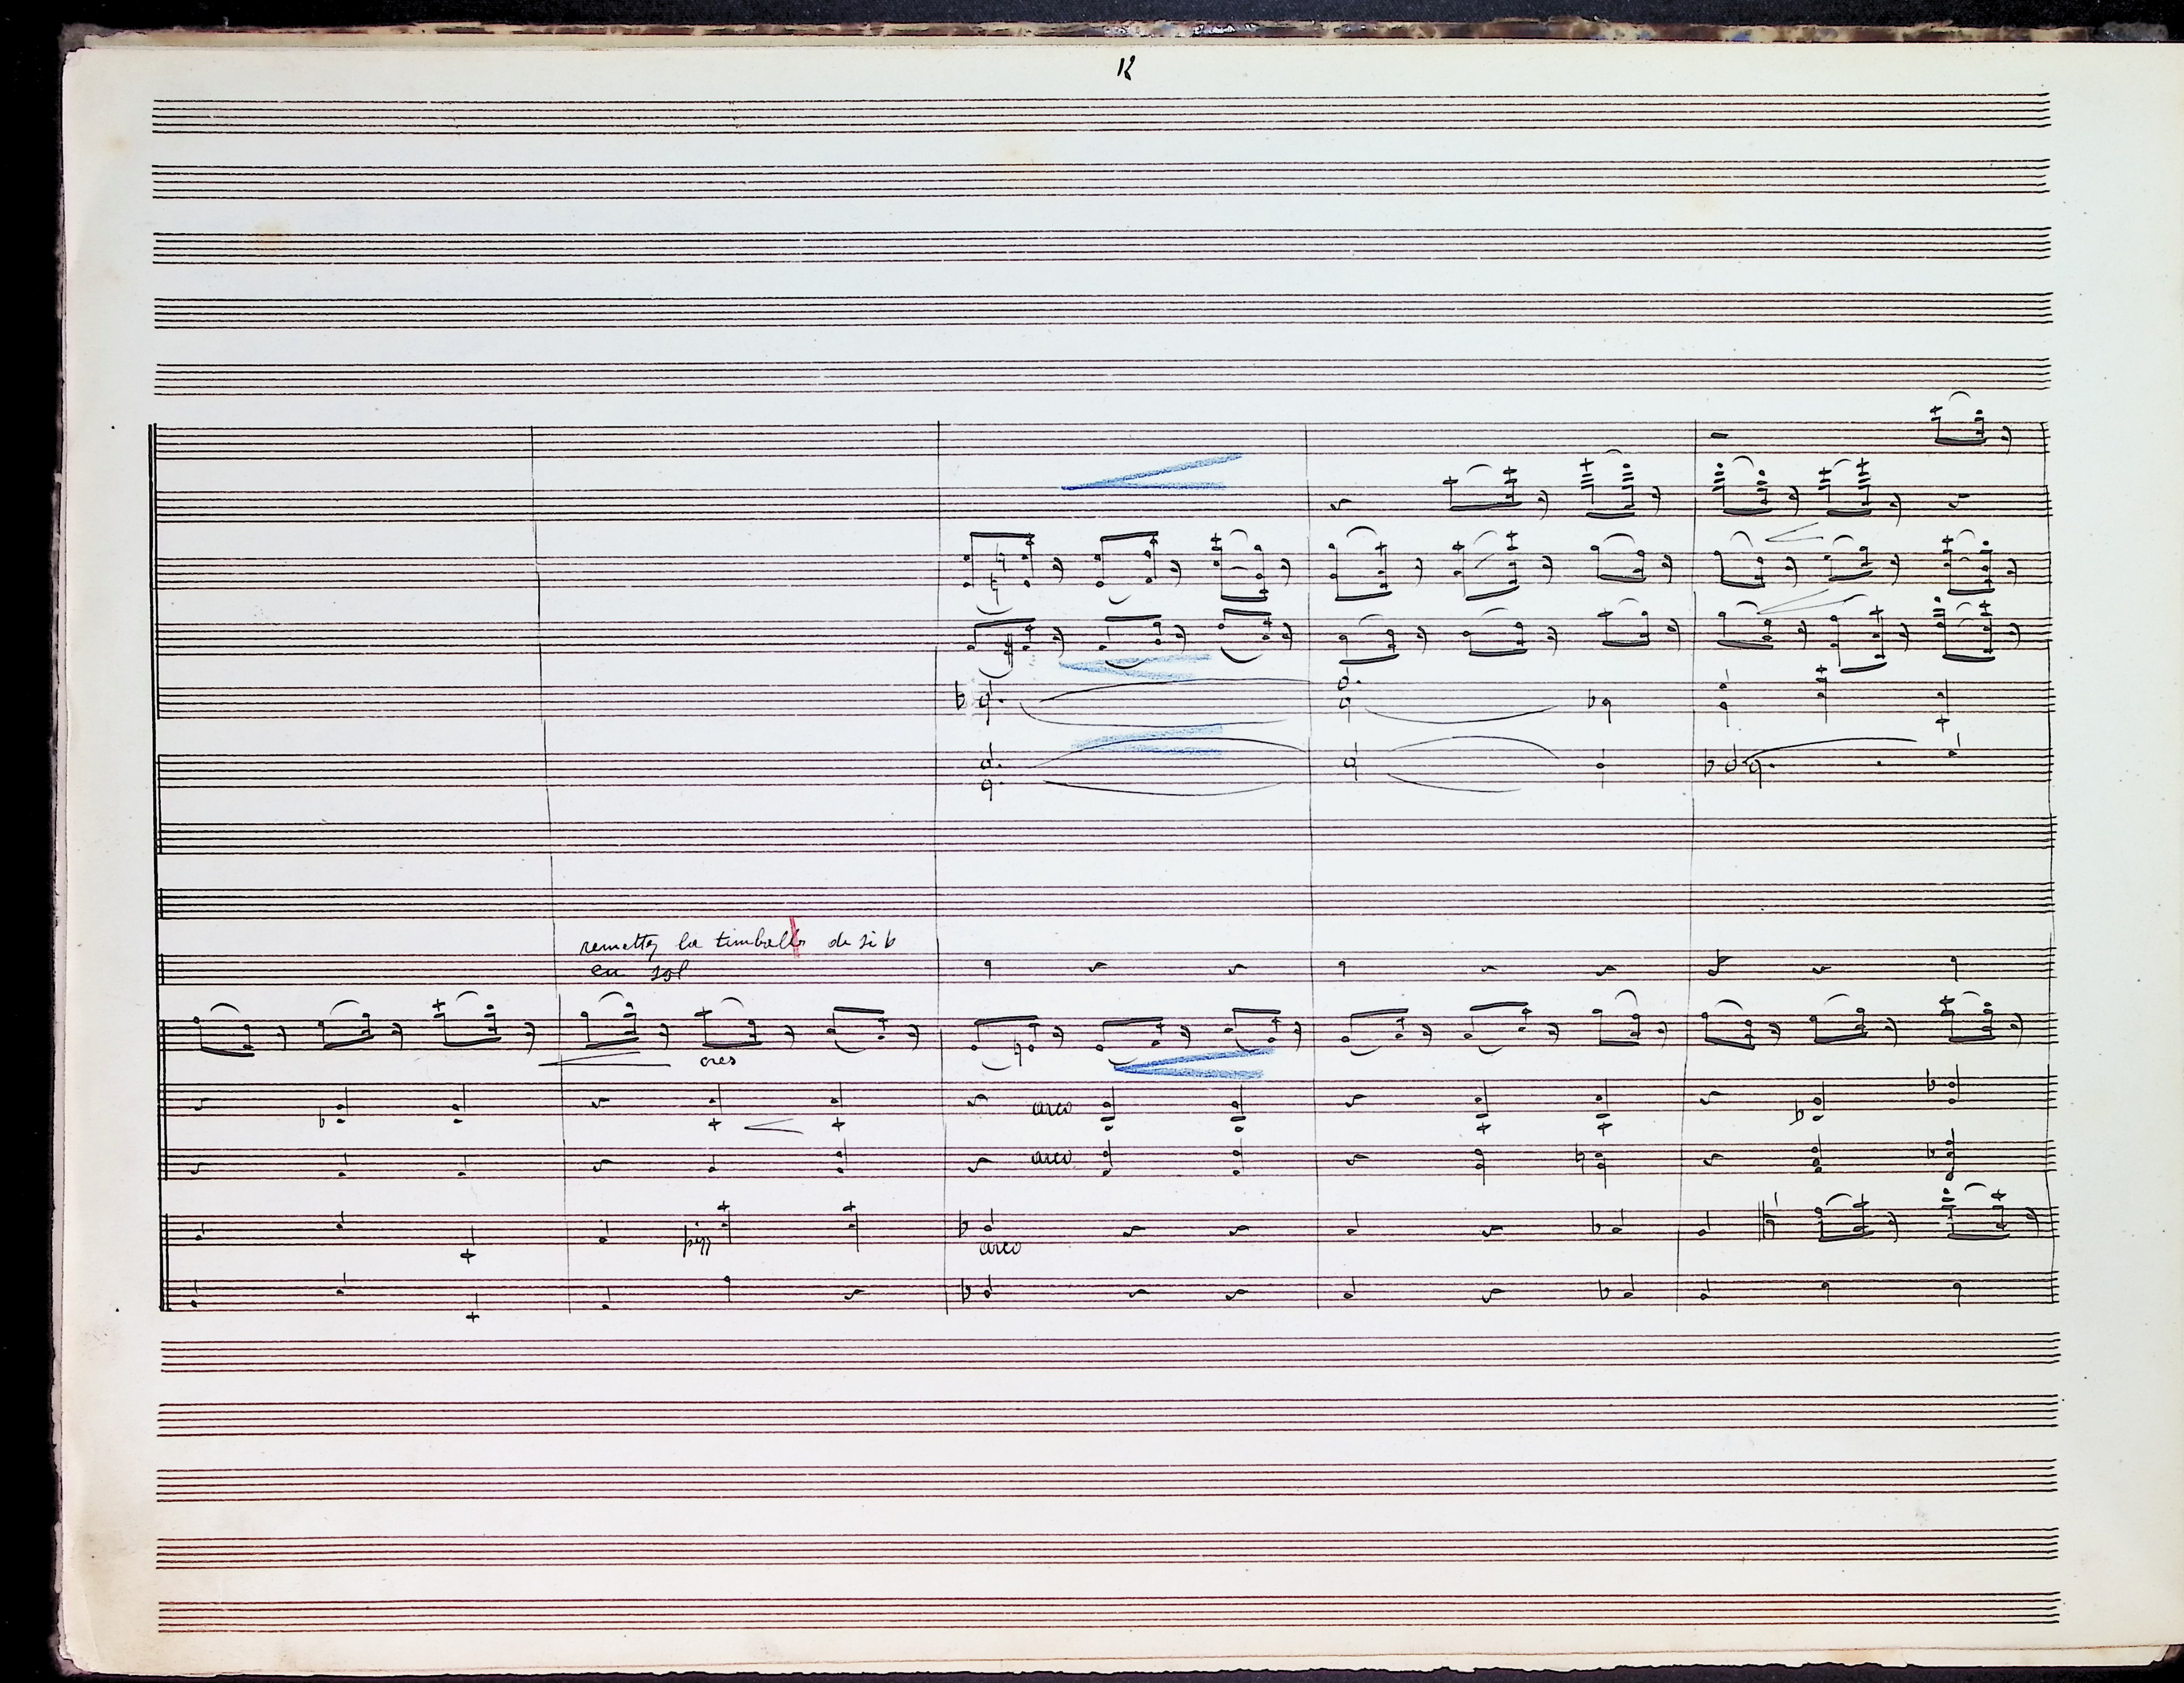 remettez la timballe de si b
en sol
cres
arco
arco
pizz
arco